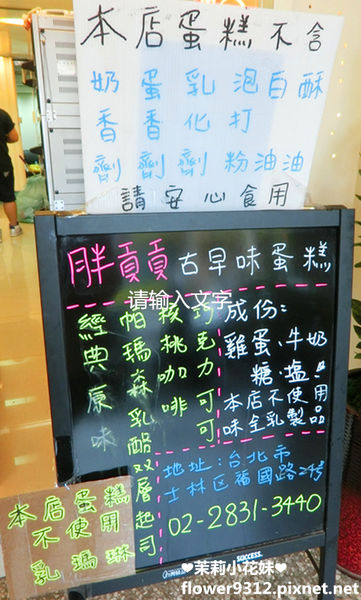 本店蛋糕不含
奶香劑
蛋香劑
乳化劑
泡打粉
白油
酥油
請安心食用
胖貢貢古早味蛋糕
请输入文字
經典原味
帕瑪森乳酪双層起司
核桃咖啡
巧克力可可
成份:
雞蛋、牛奶
糖、塩
本店不使用
味全乳製品
地址:台北市
士林区福國路24号
02-2831-3440
本店蛋糕
不使用
乳瑪琳
SUCCESS
❤茉莉小花妹❤
flower9312.pixnet.net